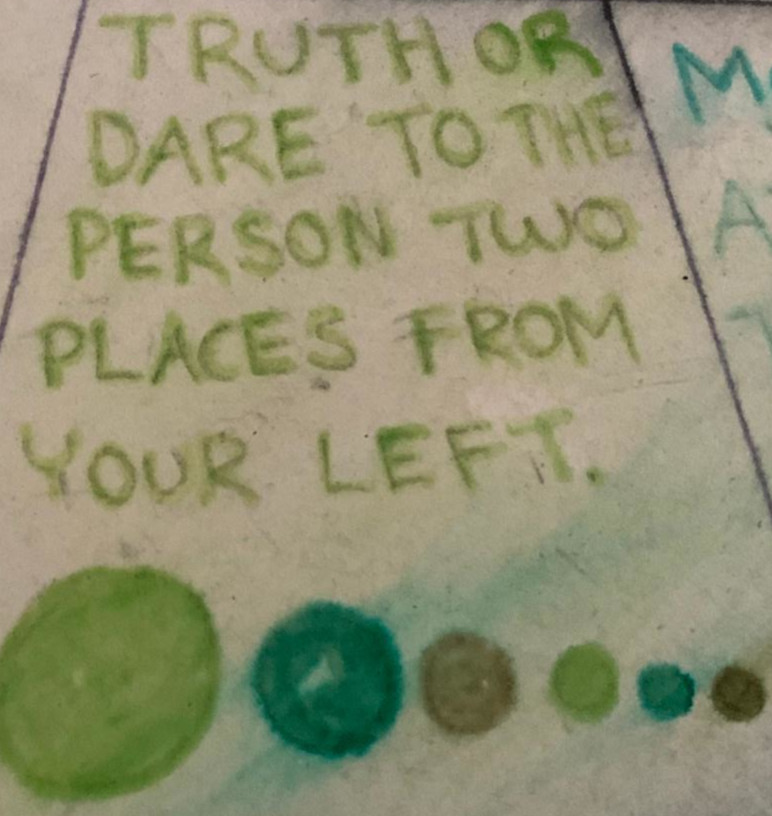 TRUTH OR
DARE TO THE
PERSON TWO
PLACES FROM
YOUR LEFT.